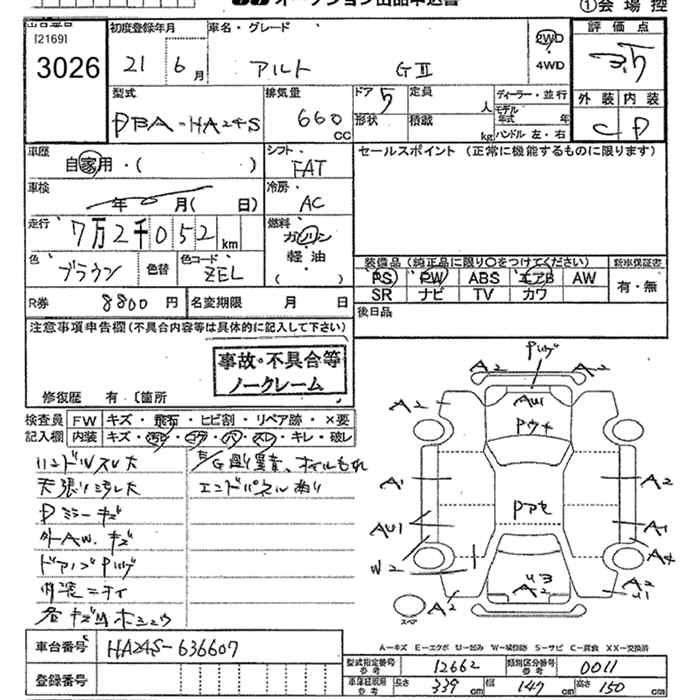 ①会場控
[2169]
3026
初度登録年月
21年 6月
車名・グレード
アルト GⅡ
2WD
4WD
評価点
3.5
外装 内装
C D
型式
DBA-HA24S
排気量
660 CC
ドア 5
形状
定員 人
積載 kg
ディーラー・並行
モデル年式 年
ハンドル 左・右
車歴
自家用・( )
シフト
FAT
セールスポイント (正常に機能するものに限ります)
車検
年 月( 日)
冷房
AC
走行
7万2千052km
燃料
ガソリン
軽油
( )
色
ブラウン
色替
色コード
ZEL
装備品 (純正品に限り○をつけてください)
新車保証書
PS PW ABS エアB AW
SR ナビ TV カワ
有・無
R券
8800円
名変期限 月 日
後日品
注意事項申告欄(不具合内容等は具体的に記入して下さい)
事故・不具合等
ノークレーム
修復歴 有・〔箇所
検査員
記入欄
FW キズ・飛石・ヒビ割・リペア跡・×要
内装 キズ・汚レ・コゲ・穴・スレ・キレ・破レ
ハンドルスレ大
天張り汚レ大
Dミラーキズ
外AW.キズ
ドアノブPハゲ
内装ニオイ
各キズ凹ホシュウ
オイルもれ
エンドパネル
Pハゲ
A2 A2
A2 AU1 A2
Pウキ
A1 A2
Pアセ
AU1 A1
W2 A4
U3
A2
A2
A2
U1
スペア
車台番号
HA24S-636607
登録番号
A-キズ E-エクボ U-凹み W-補修跡 S-サビ C-腐食 XX-交換済
型式指定番号 参考
12662
類別区分番号 参考
0011
車庫証明用 参考
長さ 339 cm
幅 147 cm
高さ 150 cm